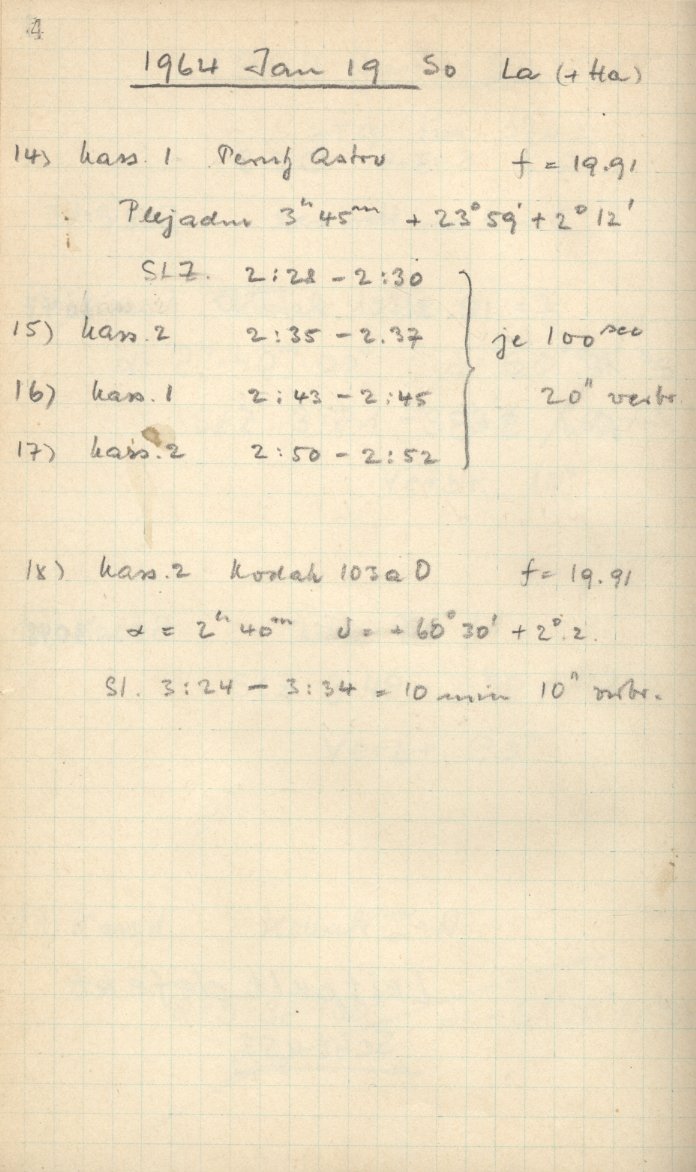 4
1964 Jan 19 So La (+ Ha)
14) Kass. 1 Perutz Astro f = 19.91
Plejaden 3h 45m + 23° 59' + 2° 12'
SLZ. 2:28 – 2:30
15) Kass. 2 2:35 – 2.37 je 100 sec
16) Kass. 1 2:43 – 2:45 20" verbr.
17) Kass. 2 2:50 – 2:52
18) Kass. 2 Kodak 103a O f = 19.91
α = 2h 40m δ = + 60° 30' + 2°.2.
Sl. 3:24 – 3:34 = 10 min 10" verbr.